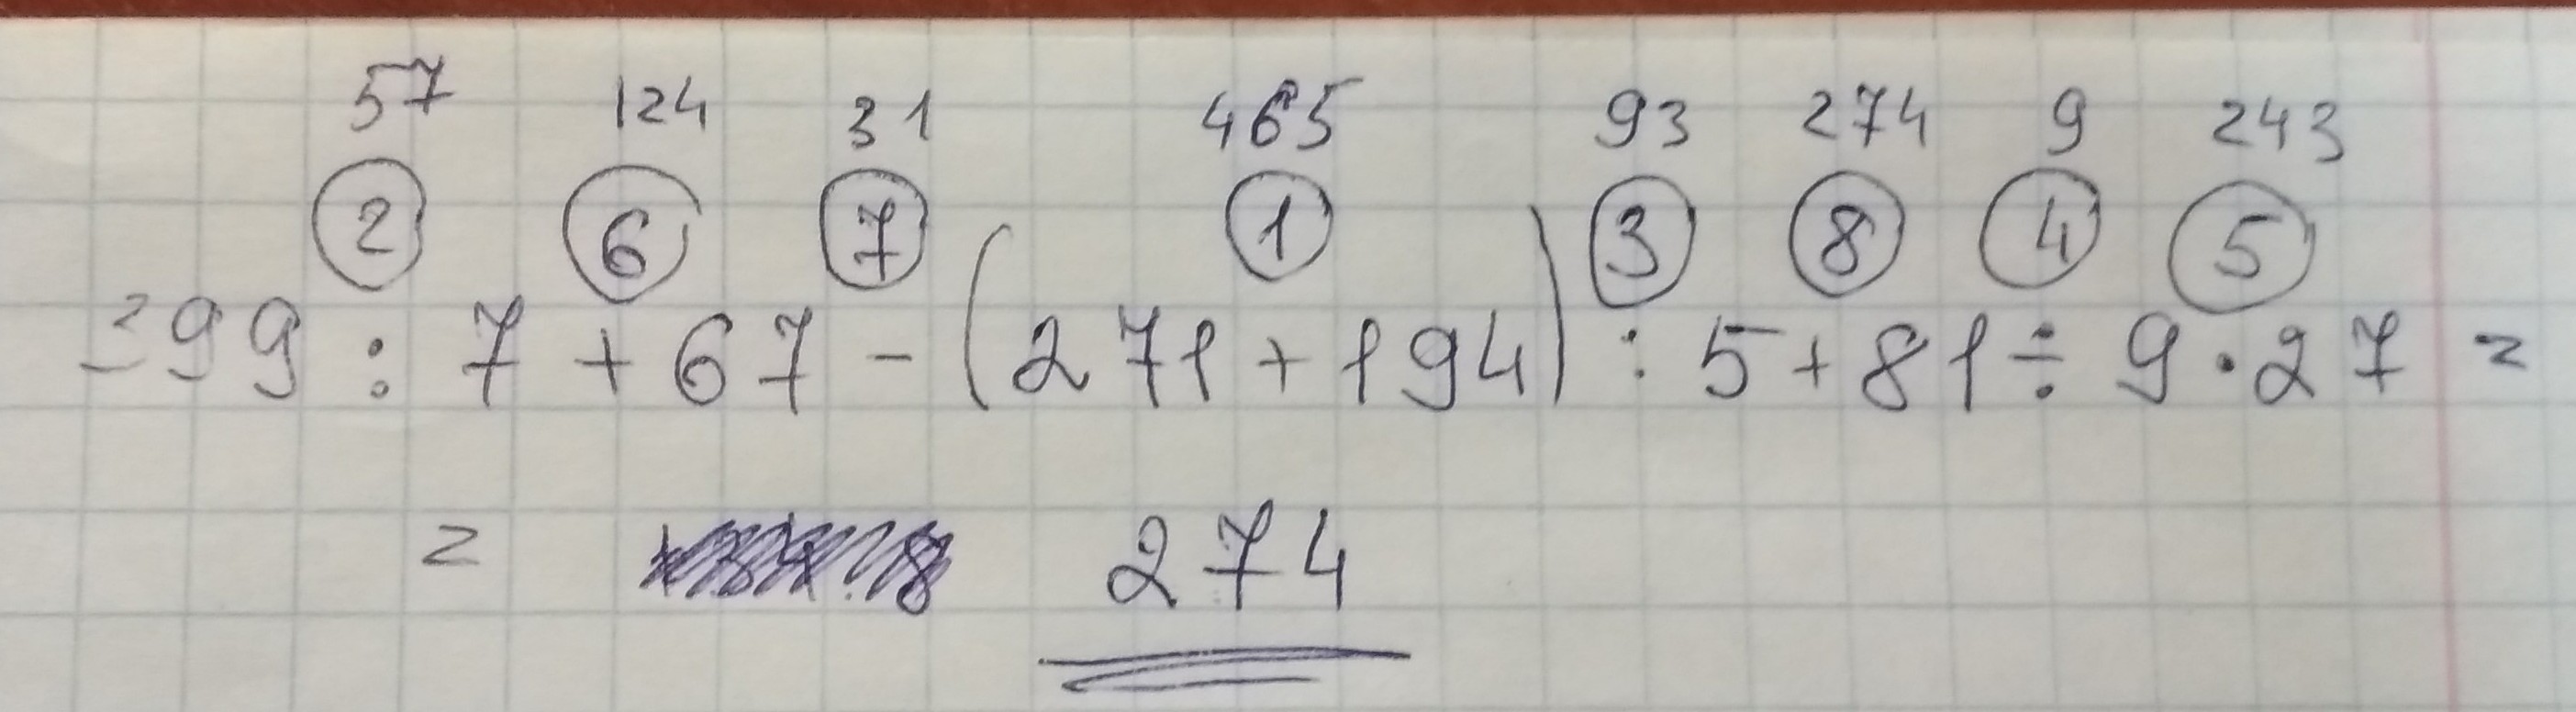 57 124 31 465 93 274 9 243
2 6 7 1 3 8 4 5
399 : 7 + 67 - (271 + 194) : 5 + 81 ÷ 9 · 27 =
= 274